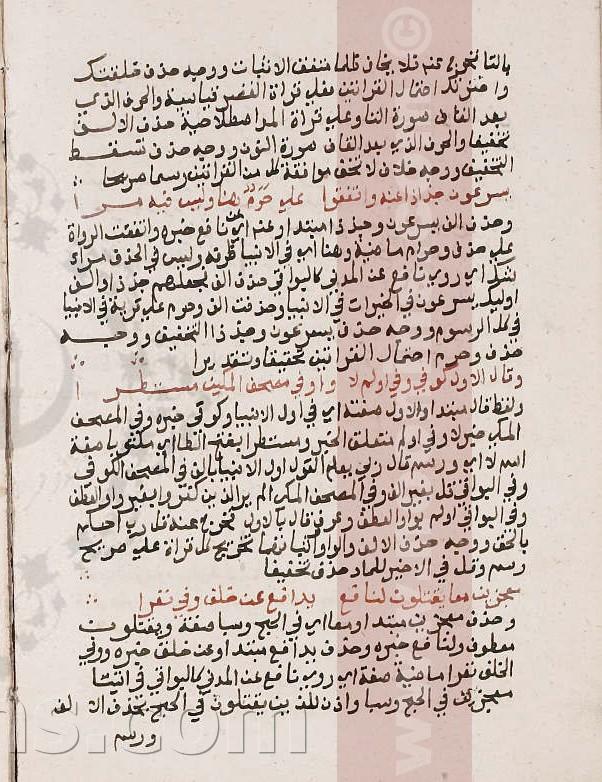 بالتا تخريج عنه فلا يخاف قلما متفق الاثبات ووجه حذف خلقتك
واخترتك احتمال القراتين فعلي قراة القصر قياسية والحرف الذي
بعد القاف صورة التا وعلي قراة المد اصطلاحية حذف الالف
تخفيفا والحرف الذي بعد القاف صورة النون ووجه حذف تسقط
التخفيف ووجه خلاف لا تخف موافقة كل من القراتين رسما صريحا
يسرعون جذاذا عنه واتفقوا علي حرم هنا وليس فيه مرا
وحذف الف يسرعون وجذذا مبتدا وعنه اي نافع خبره واتفقت الرواة
علي حذف وحرام ماضية وهنا اي في الانبيا ظرفه وليس في الحذف مراء
شك اي روي نافع عن المدني كالبواقي حذف الف فجعلهم جذذا والف
اوليك يسرعون في الخيرات في الانبيا وحذفت الف وحرم علي قرية في الانبيا
في كل الرسوم ووجه حذف يسرعون وجذذا التخفيف ووجه
حذف وحرم احتمال القراتين تحقيقا وتقديرا
وقال الاول كوفي وفي اولم لا واو في مصحف المكي مستطر ا
ولفظ قال مبتدا والاول صفته اي في اول الانبيا وكوفي خبره وفي المصحف
المكي خبر لا وفي اولم متعلق الخبر ومستطرا بفتح الطا اي مكتوبا صفة
اسم لا اي ورسم قال ربي يعلم القول اول الانبيا بالف في المصحف الكوفي
وفي البواقي قل بغير الف وفي المصحف المكي الم ير الذين كفروا بغير واو العطف
وفي البواقي اولم بواو العطف وعرف قال بالاول تخريج عنه قل رب احكم
بالحق ووجه حذف الالف والواو اثباتهما تخريج كل قراة علي صريح
رسم وقل في الاخير للماد حذف تخفيفا
معجزين معا يقتلون لنافع بدافع عن خلف وفي نفرا
وحذف معجزين مبتدا ومعا اي في الحج وسبا صفة ويقتلون
معطوف ولنافع خبره وحذف يدافع مبتدا وعن خلف خبره ووفي
الخلف نفرا ماضية صفة اي روي نافع عن المدني كالبواقي في ايتنا
معجزين في الحج وسبا واذن للذين يقتلون في الحج بحذف الالف
ورسم